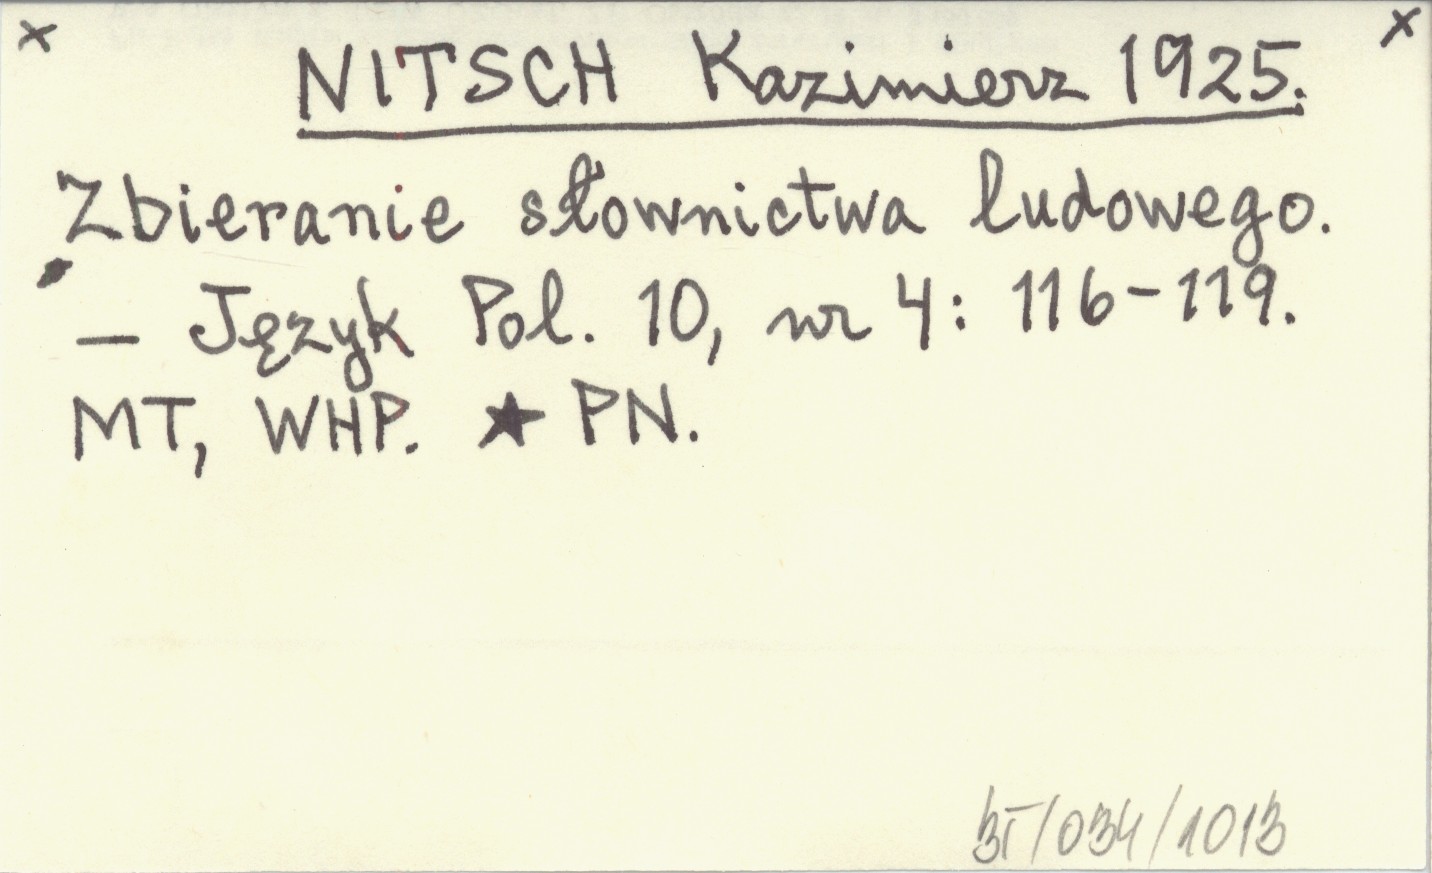 x x
NITSCH Kazimierz 1925.
Zbieranie słownictwa ludowego.
— Język Pol. 10, nr 4: 116-119.
MT, WHP. ★ PN.
/034/1013